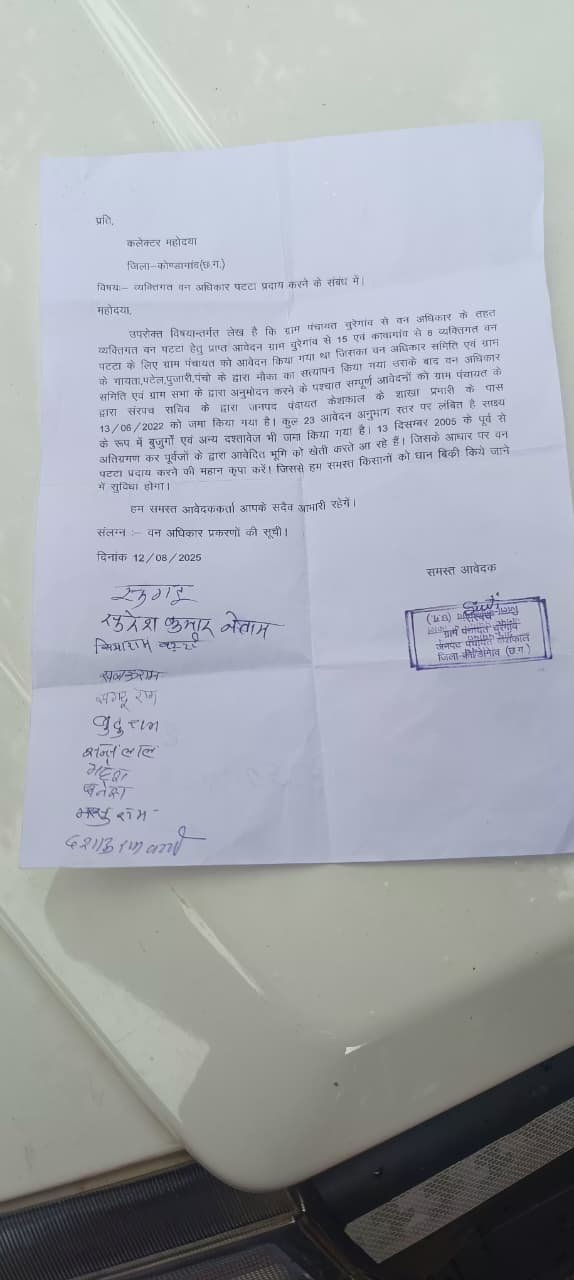 प्रति,
कलेक्टर महोदया
जिला–कोण्डागांव(छ.ग.)
विषयः– व्यक्तिगत वन अधिकार पटटा प्रदाय करने के संबंध में।
महोदया,
उपरोक्त विषयान्तर्गत लेख है कि ग्राम पंचायत चुरेगांव से वन अधिकार के तहत
व्यक्तिगत वन पटटा हेतु प्राप्त आवेदन ग्राम चुरेगांव से 15 एवं कावागांव से 8 व्यक्तिगत वन
पटटा के लिए ग्राम पंचायत को आवेदन किया गया था जिसका वन अधिकार समिति एवं ग्राम
के गायता,पटेल,पुजारी,पंचो के द्वारा मौका का सत्यापन किया गया उसके बाद वन अधिकार
समिति एवं ग्राम सभा के द्वारा अनुमोदन करने के पश्चात सम्पूर्ण आवेदनों को ग्राम पंचायत के
द्वारा संरपच सचिव के द्वारा जनपद पंचायत केशकाल के शाखा प्रभारी के पास
13/06/2022 को जमा किया गया है। कुल 23 आवेदन अनुभाग स्तर पर लंबित है साक्ष्य
के रूप में बुजुर्गो एवं अन्य दशतावेज भी जमा किया गया है। 13 दिसम्बर 2005 के पूर्व से
अतिग्रमण कर पूर्वजों के द्वारा आवेदित भूमि को खेती करते आ रहे हैं। जिसके आधार पर वन
पटटा प्रदाय करने की महान कृपा करें। जिससे हम समस्त किसानों को धान बिक्री किये जाने
में सुविधा होगा।
हम समस्त आवेदककर्ता आपके सदैव आभारी रहेगें।
संलग्न :– वन अधिकार प्रकरणों की सूची।
दिनांक 12/08/2025
समस्त आवेदक
ग्राम पंचायत चुरेगांव
जनपद पंचायत केशकाल
जिला-कोण्डागांव (छ.ग.)
कुमार नेताम
राम
बुदु राम
सन्त लाल
महेश
राम